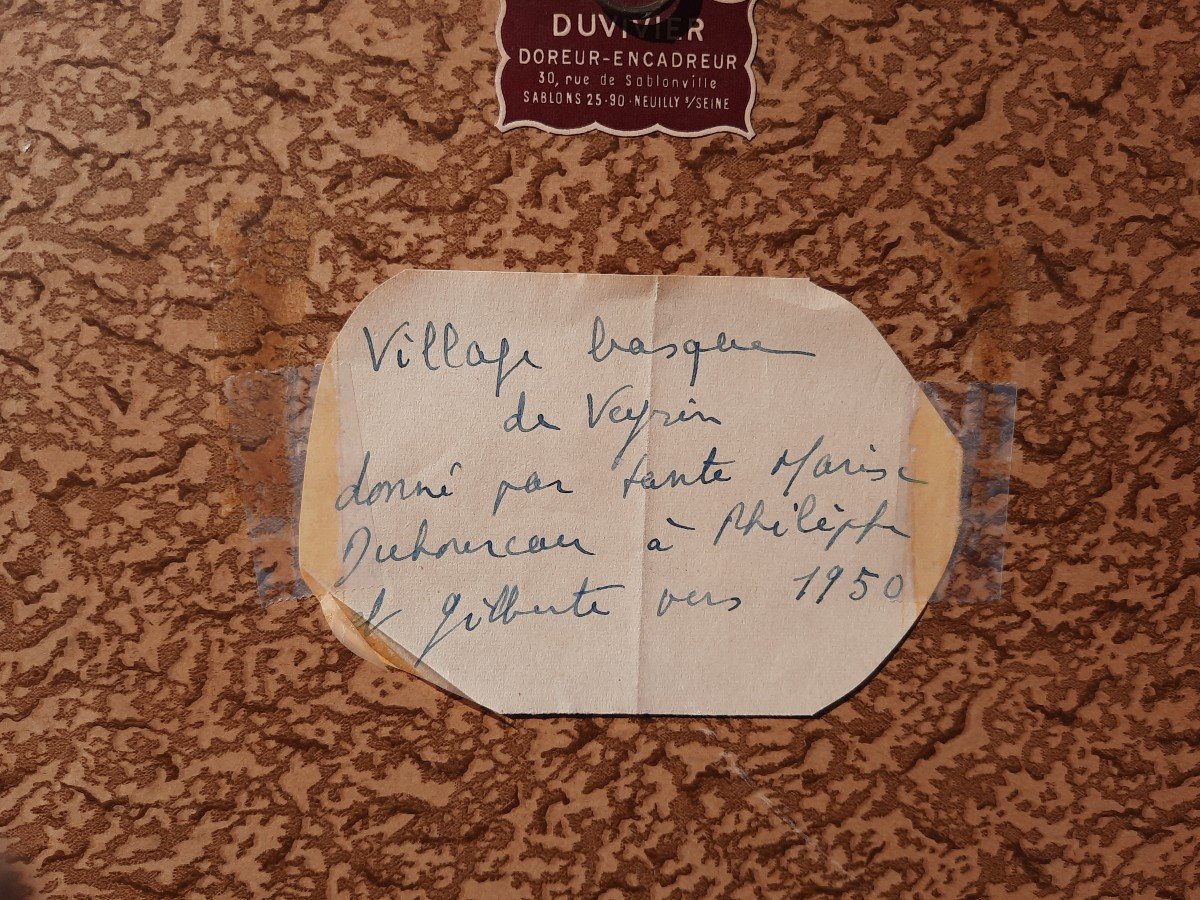 DUVIVIER
DOREUR-ENCADREUR
30, rue de Sablonville
SABLONS 25-90-NEUILLY S/SEINE
Village basque
de Veyrin
donné par tante Marise
Duhourcau à Philippe
et Gilberte vers 1950